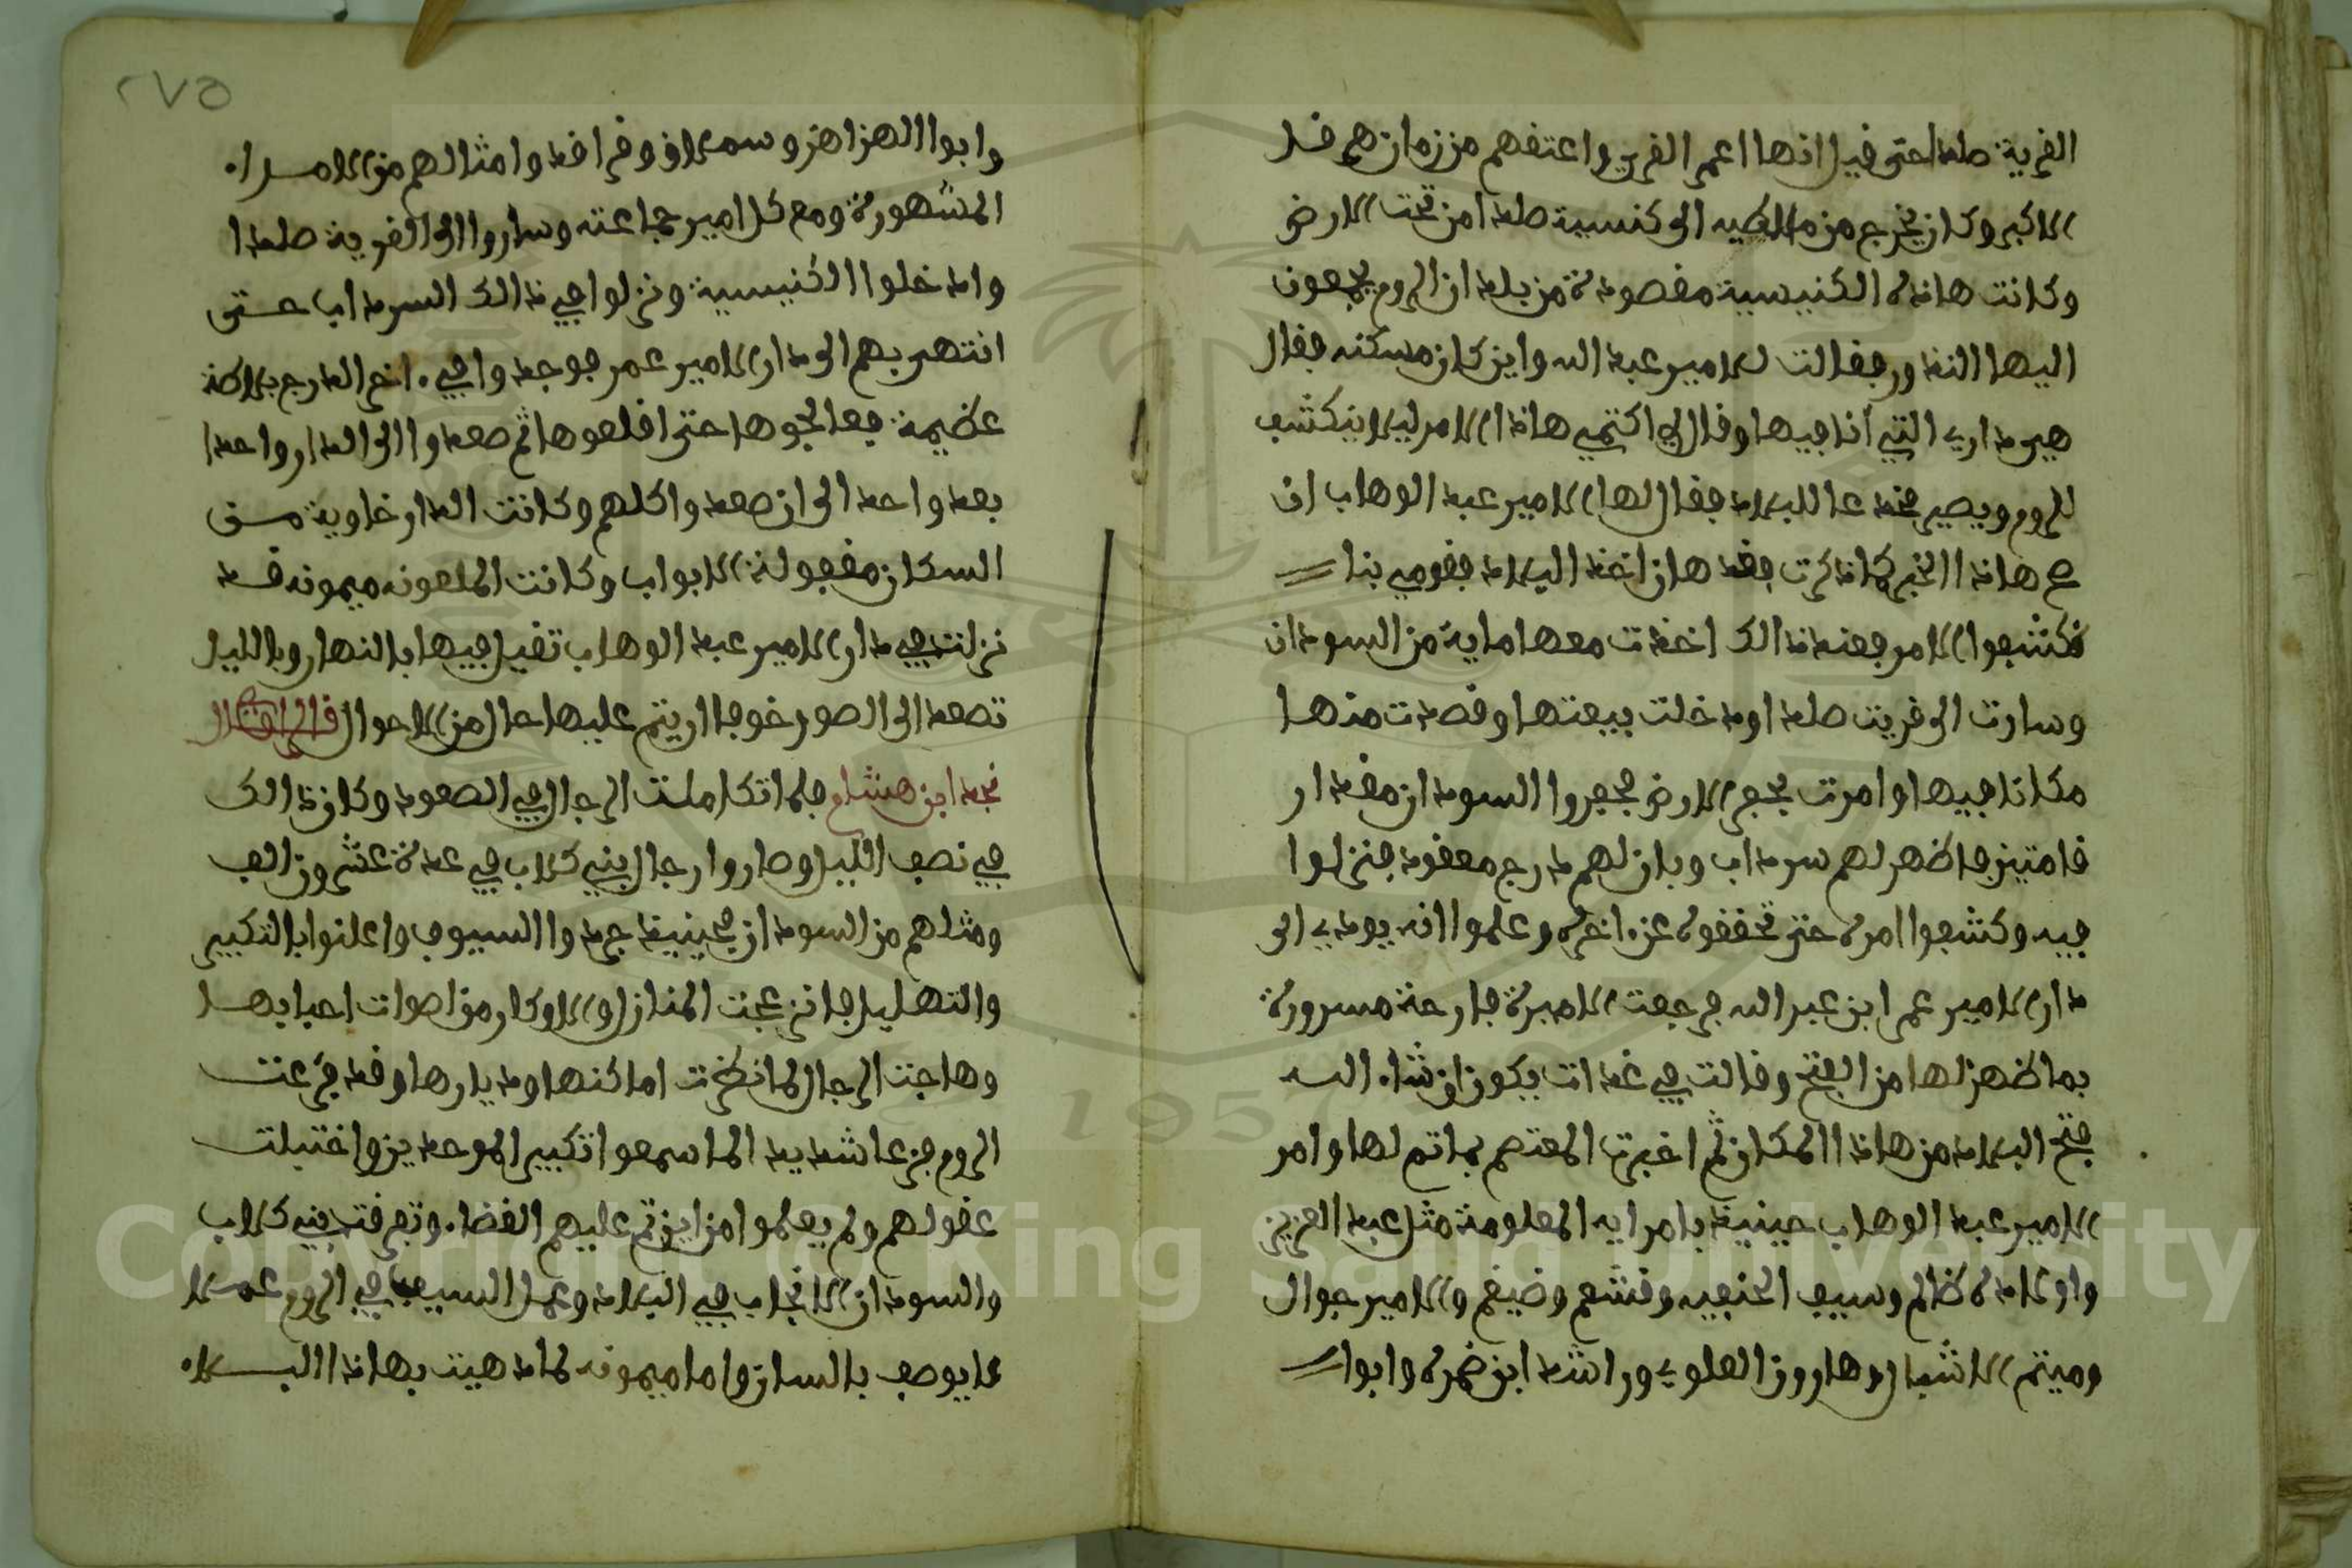 القرية صلدا حتى قيل انها اعمر القرى واعتقهم من زمان هرقل
الاكبر وكان يخرج من مالطيه الى كنسية صلدا من تحت الارض
وكانت هاذه الكنيسية مقصودة من بلدان الروم يجمعون
اليها النذور فقالت للامير عبد الله واين كان مسكنه فقال
هي داري التي انا فيها وقال لي اكتمي هاذا الامر ليلا ينكشف
للروم ويصير فقال لها الامير عبد الوهاب ان
صح هاذا الخبر كما ذكرت فقد هان اخذ البلاد فقومي بنا
نكشفوا الامر فعند ذالك اخذت معها ماية من السودان
وسارت الى قريت صلدا ودخلت بيعتها وقصدت منها
مكانا فيها وامرت بحفر الارض فحفروا السودان مقدار
قامتين فاظهر لهم سرداب وبان لهم درج معقود فنزلوا
فيه وكشفوا امره حتى تحققوه عن اخره وعلموا انه يودي الى
دار الامير عمر ابن عبد الله فرجعت الاميرة فارحة مسرورة
بما ظهر لها من الفتح وقالت في غداة يكون ان شاء الله
فتح البلاد من هاذا المكان ثم اخبرت المعتصم بما تم لها وامر
الامير عبد الوهاب حينيذ بامرايه المعلومة مثل عبد العزيز
واولاده ظالم وسيف الحنفيه وقشعم وضيغم والامير جوال
وميتم الاشبال وهارون العلوي وراشد ابن ضمره وابوا
٢٧٥
وابوا الهزاهز وسملاق وقراقد وامثالهم من الامراء
المشهورة ومع كل امير جماعته وساروا الى القرية صلدا
وادخلوا الكنيسية ونزلوا في ذالك السرداب حتى
انتهى بهم الى دار الامير عمر فوجدوا في ءاخر الدرج بلاطة
عظيمة فعالجوها حتى اقلعوها ثم صعدوا الى الدار واحدا
بعد واحد الى ان صعدوا كلهم وكانت الدار خاوية من
السكان مقفولة الابواب وكانت الملعونه ميمونه قد
نزلت في دار الامير عبد الوهاب تقيل فيها بالنهار وبالليل
تصعد الى الصور خوفا ان يتم عليها حال من الاحوال قال
نجد ابن هشام فلما تكاملت الرجال في الصعود وكان ذالك
في نصف الليل وصاروا رجال بني كلاب في عدة عشرون الف
ومثلهم من السودان فحينيذ جردوا السيوف واعلنوا بالتكبير
والتهليل فانزعجت المنازل والاوكار من اصوات احبابها
وهاجت الرجال لما نظرت اماكنها وديارها وقد فزعت
الروم فزعا شديد لما سمعوا تكبير الموحدين واختبلت
عقولهم ولم يعلموا من اين تم عليهم القضاء وتفرقت بني كلاب
والسودان الانجاب في البلاد وعمل السيف في الروم عملا
لا يوصف بالسان واما ميمونه لما دهيت بهاذا البلاء